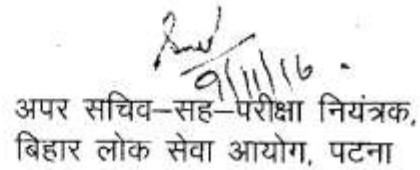 9/11/16
अपर सचिव–सह–परीक्षा नियंत्रक,
बिहार लोक सेवा आयोग, पटना